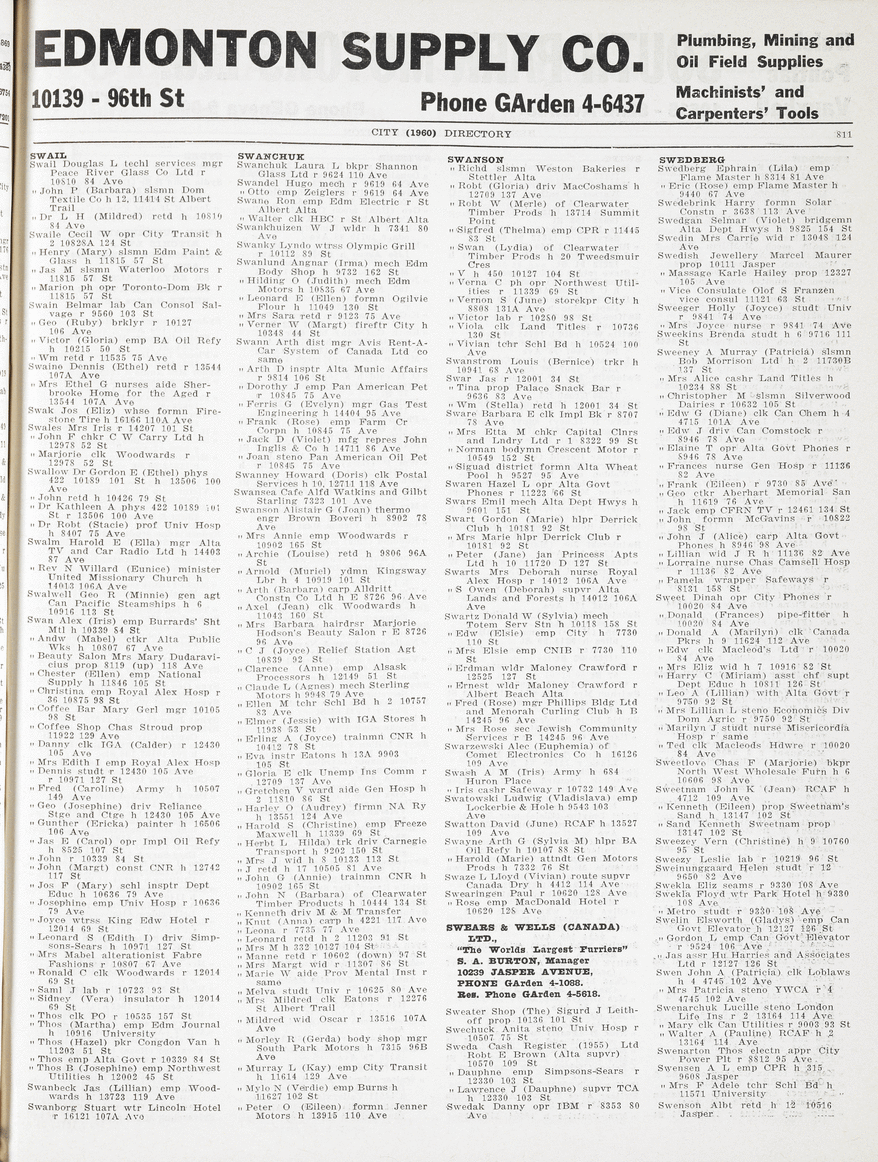 EDMONTON SUPPLY CO.
10139 - 96th St
Phone GArden 4-6437
Plumbing, Mining and
Oil Field Supplies
Machinists' and
Carpenters' Tools
CITY (1960) DIRECTORY
811
SWAIL
Swail Douglas L techl services mgr
Peace River Glass Co Ltd r
10810 84 Ave
" John P (Barbara) slsmn Dom
Textile Co h 12, 11414 St Albert
Trail
" Dr L H (Mildred) retd h 10810
84 Ave
Swaile Cecil W opr City Transit h
2 10828A 124 St
" Henry (Mary) slsmn Edm Paint &
Glass h 11815 57 St
" Jas M slsmn Waterloo Motors r
11815 57 St
" Marion ph opr Toronto-Dom Bk r
11815 57 St
Swain Belmar lab Can Consol Sal-
vage r 9560 103 St
" Geo (Ruby) brklyr r 10127
106 Ave
" Victor (Gloria) emp BA Oil Refy
h 10215 50 St
" Wm retd r 11535 75 Ave
Swaine Dennis (Ethel) retd r 13544
107A Ave
" Mrs Ethel G nurses aide Sher-
brooke Home for the Aged r
13544 107A Ave
Swak Jos (Eliz) whse formn Fire-
stone Tire h 16166 110A Ave
Swales Mrs Iris r 14207 101 St
" John F chkr C W Carry Ltd h
12978 52 St
" Marjorie clk Woodwards r
12978 52 St
Swallow Dr Gordon E (Ethel) phys
422 10189 101 St h 13506 100
Ave
" John retd h 10426 79 St
" Dr Kathleen A phys 422 10189 101
St r 13506 100 Ave
" Dr Robt (Stacie) prof Univ Hosp
h 8407 75 Ave
Swalm Harold E (Ella) mgr Alta
TV and Car Radio Ltd h 14403
87 Ave
" Rev N Willard (Eunice) minister
United Missionary Church h
14013 106A Ave
Swalwell Geo R (Minnie) gen agt
Can Pacific Steamships h 6
10916 113 St
Swan Alex (Iris) emp Burrards' Sht
Mtl h 10339 84 St
" Andw (Mabel) ctkr Alta Public
Wks h 10807 67 Ave
" Beauty Salon Mrs Mary Dudaravi-
cius prop 8119 (up) 118 Ave
" Chester (Ellen) emp National
Supply h 11846 105 St
" Christina emp Royal Alex Hosp r
36 10875 98 St
" Coffee Bar Mary Gerl mgr 10105
98 St
" Coffee Shop Chas Stroud prop
11922 129 Ave
" Danny clk IGA (Calder) r 12430
105 Ave
" Mrs Edith I emp Royal Alex Hosp
" Dennis studt r 12430 105 Ave
r 10971 127 St
" Fred (Caroline) Army h 10507
149 Ave
" Geo (Josephine) driv Reliance
Stge and Ctge h 12430 105 Ave
" Gunther (Ericka) painter h 16506
106 Ave
" Jas E (Carol) opr Impl Oil Refy
h 8525 107 St
" John r 10339 84 St
" John (Margt) const CNR h 12742
117 St
" Jos F (Mary) schl insptr Dept
Educ h 10636 79 Ave
" Josephine emp Univ Hosp r 10636
79 Ave
" Joyce wtrss King Edw Hotel r
12014 69 St
" Leonard S (Edith I) driv Simp-
sons-Sears h 10971 127 St
" Mrs Mabel alterationist Fabre
Fashions r 10807 67 Ave
" Ronald C clk Woodwards r 12014
69 St
" Saml J lab r 10723 93 St
" Sidney (Vera) insulator h 12014
69 St
" Thos clk PO r 10535 157 St
" Thos (Martha) emp Edm Journal
h 10916 University
" Thos (Hazel) pkr Congdon Van h
11203 51 St
" Thos emp Alta Govt r 10339 84 St
" Thos B (Josephine) emp Northwest
Utilities h 12002 45 St
Swanbeck Jas (Lillian) emp Wood-
wards h 13723 119 Ave
Swanborg Stuart wtr Lincoln Hotel
r 16121 107A Ave
SWANCHUK
Swanchuk Laura L bkpr Shannon
Glass Ltd r 9624 110 Ave
Swandel Hugo mech r 9619 64 Ave
" Otto emp Zeiglers r 9619 64 Ave
Swane Ron emp Edm Electric r St
Albert Alta
" Walter clk HBC r St Albert Alta
Swankhuizen W J wldr h 7341 80
Ave
Swanky Lyndo wtrss Olympic Grill
r 10112 89 St
Swanlund Angnar (Irma) mech Edm
Body Shop h 9732 162 St
" Hilding O (Judith) mech Edm
Motors h 10835 67 Ave
" Leonard E (Ellen) formn Ogilvie
Flour h 11049 130 St
" Mrs Sara retd r 9123 75 Ave
" Verner W (Margt) fireftr City h
10348 44 St
Swann Arth dist mgr Avis Rent-A-
Car System of Canada Ltd co
same
" Arth D insptr Alta Munic Affairs
r 9814 106 St
" Dorothy J emp Pan American Pet
r 10845 75 Ave
" Ferris G (Evelyn) mgr Gas Test
Engineering h 14404 95 Ave
" Frank (Rose) emp Farm Cr
Corpn h 10845 75 Ave
" Jack D (Violet) mfg repres John
Inglis & Co h 14711 86 Ave
" Joan steno Pan American Oil Pet
r 10845 75 Ave
Swanney Howard (Doris) clk Postal
Services h 10, 12711 118 Ave
Swansea Cafe Alfd Watkins and Gilbt
Sterling 7323 101 Ave
Swanson Alistair G (Joan) thermo
engr Brown Boveri h 8902 78
Ave
" Mrs Annie emp Woodwards r
10902 165 St
" Archie (Loise) retd h 9806 96A
St
" Arnold (Muriel) ydmn Kingsway
Lbr h 4 10919 101 St
" Arth (Barbara) carp Alldritt
Constn Co Ltd h E 8726 96 Ave
" Axel (Jean) clk Woodwards h
11043 160 St
" Mrs Barbara hairdrsr Marjorie
Hodson's Beauty Salon r E 8726
96 Ave
" C J (Joyce) Relief Station Agt
10839 92 St
" Clarence (Anne) emp Alsask
Processors h 12149 51 St
" Claude L (Agnes) mech Sterling
Motors h 9948 79 Ave
" Ellen M tchr Schl Bd h 2 10757
83 Ave
" Elmer (Jessie) with IGA Stores h
11938 53 St
" Erling A (Joyce) trainmn CNR h
10412 78 St
" Eva instr Eatons h 13A 9903
105 St
" Gloria E clk Unemp Ins Comm r
12709 137 Ave
" Gretchen V ward aide Gen Hosp h
2 11810 86 St
" Harley O (Audrey) firmn NA Ry
h 13551 124 Ave
" Harold S (Christine) emp Freeze
Maxwell h 11339 69 St
" Herbt L (Hilda) trk driv Carnegie
Transport h 9202 150 St
" Mrs J wid h 8 10133 113 St
" J retd h 17 10505 81 Ave
" John G (Annie) trainmn CNR h
10902 165 St
" John N (Barbara) of Clearwater
Timber Products h 10444 134 St
" Kenneth driv M & M Transfer
" Knut (Anna) carp h 4221 117 Ave
" Leona r 7735 77 Ave
" Leonard retd h 2 11203 91 St
" Mrs M h 332 10127 104 St
" Manne retd r 10602 (down) 97 St
" Mrs Margt wid r 11307 86 St
" Marie W aide Prov Mental Inst r
same
" Melva studt Univ r 10625 80 Ave
" Mrs Mildred clk Eatons r 12276
St Albert Trail
" Mildred wid Oscar r 13516 107A
Ave
" Morley R (Gerda) body shop mgr
South Park Motors h 7315 96B
Ave
" Murray L (Kay) emp City Transit
h 11614 129 Ave
" Mylo N (Verdie) emp Burns h
11627 102 St
" Peter O (Eileen) formn Jenner
Motors h 13915 110 Ave
SWANSON
" Richd slsmn Weston Bakeries r
Stettler Alta
" Robt (Gloria) driv MacCoshams h
12709 137 Ave
" Robt W (Merle) of Clearwater
Timber Prods h 13714 Summit
Point
" Sigfred (Thelma) emp CPR r 11445
83 St
" Swan (Lydia) of Clearwater
Timber Prods h 20 Tweedsmuir
Cres
" V h 450 10127 104 St
" Verna C ph opr Northwest Util-
ities r 11339 69 St
" Vernon S (June) storekpr City h
8808 131A Ave
" Victor lab r 10250 98 St
" Viola clk Land Titles r 10736
130 St
" Vivian tchr Schl Bd h 10524 100
Ave
Swanstrom Louis (Bernice) trkr h
10941 68 Ave
Swar Jas r 12001 34 St
" Tina prop Palace Snack Bar r
9636 83 Ave
" Wm (Stella) retd h 12001 34 St
Sware Barbara E clk Impl Bk r 8707
78 Ave
" Mrs Etta M chkr Capital Clnrs
and Lndry Ltd r 1 8322 99 St
" Norman bodymn Crescent Motor r
10549 152 St
" Siguad district formn Alta Wheat
Pool h 9527 95 Ave
Swaren Hazel L opr Alta Govt
Phones r 11223 66 St
Swars Emil mech Alta Dept Hwys h
9601 151 St
Swart Gordon (Marie) hlpr Derrick
Club h 10181 92 St
" Mrs Marie hlpr Derrick Club r
10181 92 St
" Peter (Jane) jan Princess Apts
Ltd h 10 11720 D 127 St
Swarts Mrs Deborah nurse Royal
Alex Hosp r 14012 106A Ave
" S Owen (Deborah) supvr Alta
Lands and Forests h 14012 106A
Ave
Swartz Donald W (Sylvia) mech
Totem Serv Stn h 10118 158 St
" Edw (Elsie) emp City h 7730
110 St
" Mrs Elsie emp CNIB r 7730 110
St
" Erdman wldr Maloney Crawford r
12525 127 St
" Ernest wldr Maloney Crawford r
Albert Beach Alta
" Fred (Rose) mgr Phillips Bldg Ltd
and Menorah Curling Club h B
14245 96 Ave
" Mrs Rose sec Jewish Community
Services r B 14245 96 Ave
Swarzewski Alec (Euphemia) of
Comet Electronics Co h 16126
109 Ave
Swash A M (Iris) Army h 684
Huron Place
" Iris cashr Safeway r 10732 149 Ave
Swatowski Ludwig (Vladislava) emp
Lockerbie & Hole h 9543 103
Ave
Swatton David (June) RCAF h 13527
109 Ave
Swayne Arth G (Sylvia M) hlpr BA
Oil Refy h 10107 88 St
" Harold (Marie) attndt Gen Motors
Prods h 7332 76 St
Swaze L Lloyd (Vivian) route supvr
Canada Dry h 4412 114 Ave
Swearingen Paul r 10620 128 Ave
" Rose emp MacDonald Hotel r
10620 128 Ave
SWEARS & WELLS (CANADA)
LTD.,
"The Worlds Largest Furriers"
S. A. BURTON, Manager
10239 JASPER AVENUE,
PHONE GArden 4-1088.
Res. Phone GArden 4-5618.
Sweater Shop (The) Sigurd J Leith-
off prop 10136 101 St
Swechuck Anita steno Univ Hosp r
10507 75 St
Sweda Cash Register (1955) Ltd
Robt E Brown (Alta supvr)
10570 109 St
" Dauphne emp Simpsons-Sears r
12330 103 St
" Lawrence J (Dauphne) supvr TCA
h 12330 103 St
Swedak Danny opr IBM r 8353 80
Ave
SWEDBERG
Swedberg Ephrain (Lila) emp
Flame Master h 8314 81 Ave
" Eric (Rose) emp Flame Master h
9440 67 Ave
Swedebrink Harry formn Solar
Constn r 2638 113 Ave
Swedgan Selmar (Violet) bridgemn
Alta Dept Hwys h 9825 154 St
Swedin Mrs Carrie wid r 13048 124
Ave
Swedish Jewellery Marcel Maurer
prop 10111 Jasper
" Massage Karle Hailey prop 12327
105 Ave
" Vice Consulate Olof S Franzen
vice consul 11121 63 St
Sweeger Holly (Joyce) studt Univ
r 9841 74 Ave
" Mrs Joyce nurse r 9841 74 Ave
Sweekins Brenda studt h 6 9716 111
St
Sweeney A Murray (Patricia) slsmn
Bob Morrison Ltd h 2 11730B
137 St
" Mrs Alice cashr Land Titles h
10234 88 St
" Christopher M slsmn Silverwood
Dairies r 10632 105 St
" Edw G (Diane) clk Can Chem h 4
4715 101A Ave
" Edw J driv Can Comstock r
8946 78 Ave
" Elaine T opr Alta Govt Phones r
8946 78 Ave
" Frances nurse Gen Hosp r 11136
82 Ave
" Frank (Eileen) r 9730 85 Ave
" Geo ctkr Aberhart Memorial San
h 11619 76 Ave
" Jack emp CFRN TV r 12461 134 St
" John formn McGavins r 10822
98 St
" John J (Alice) carp Alta Govt
Phones h 8946 98 Ave
" Lillian wid J R h 11136 82 Ave
" Lorraine nurse Chas Camsell Hosp
r 11136 82 Ave
" Pamela wrapper Safeways r
8131 158 St
Sweet Dinah opr City Phones r
10020 84 Ave
" Donald (Frances) pipe-fitter h
10030 84 Ave
" Donald A (Marilyn) clk Canada
Pkrs h 9 11624 112 Ave
" Edw clk Macleod's Ltd r 10020
84 Ave
" Mrs Eliz wid h 7 10916 82 St
" Harry C (Miriam) asst chf supt
Dept Educ h 10811 126 St
" Leo A (Lillian) with Alta Govt r
9750 92 St
" Mrs Lillian L steno Economics Div
Dom Agric r 9750 92 St
" Marilyn J studt nurse Misericordia
Hosp r same
" Ted clk Macleods Hdwre r 10020
84 Ave
Sweetlove Chas F (Marjorie) bkpr
North West Wholesale Furn h 6
16606 98 Ave
Sweetnam John K (Jean) RCAF h
4712 109 Ave
" Kenneth (Eileen) prop Sweetnam's
Sand h 13147 102 St
" Sand Kenneth Sweetnam prop
13147 102 St
Sweezey Vern (Christine) h 9 10760
95 St
Sweezy Leslie lab r 10219 96 St
Sweinunggaard Helen studt r 12
9650 82 Ave
Swekla Eliz seams r 9330 108 Ave
Swekla Floyd wtr Park Hotel h 9330
108 Ave
" Metro studt r 9330 108 Ave
Swelin Elsworth (Gladys) emp Can
Govt Elevator h 12127 126 St
" Gordon L emp Can Govt Elevator
r 9524 106 Ave
" Jas assr Hu Harries and Associates
Ltd r 12127 126 St
Swen John A (Patricia) clk Loblaws
h 4 4745 102 Ave
" Mrs Patricia steno YWCA r 4
4745 102 Ave
Swenarchuk Lucille steno London
Life Ins r 2 13164 114 Ave
" Mary clk Can Utilities r 9003 93 St
" Walter A (Pauline) RCAF h 2
13164 114 Ave
Swenarton Thos electn appr City
Power Plt r 8812 95 Ave
Swensen A L emp CPR h 315
9608 Jasper
" Mrs F Adele tchr Schl Bd h
11571 University
Swenson Albt retd h 12 10516
Jasper